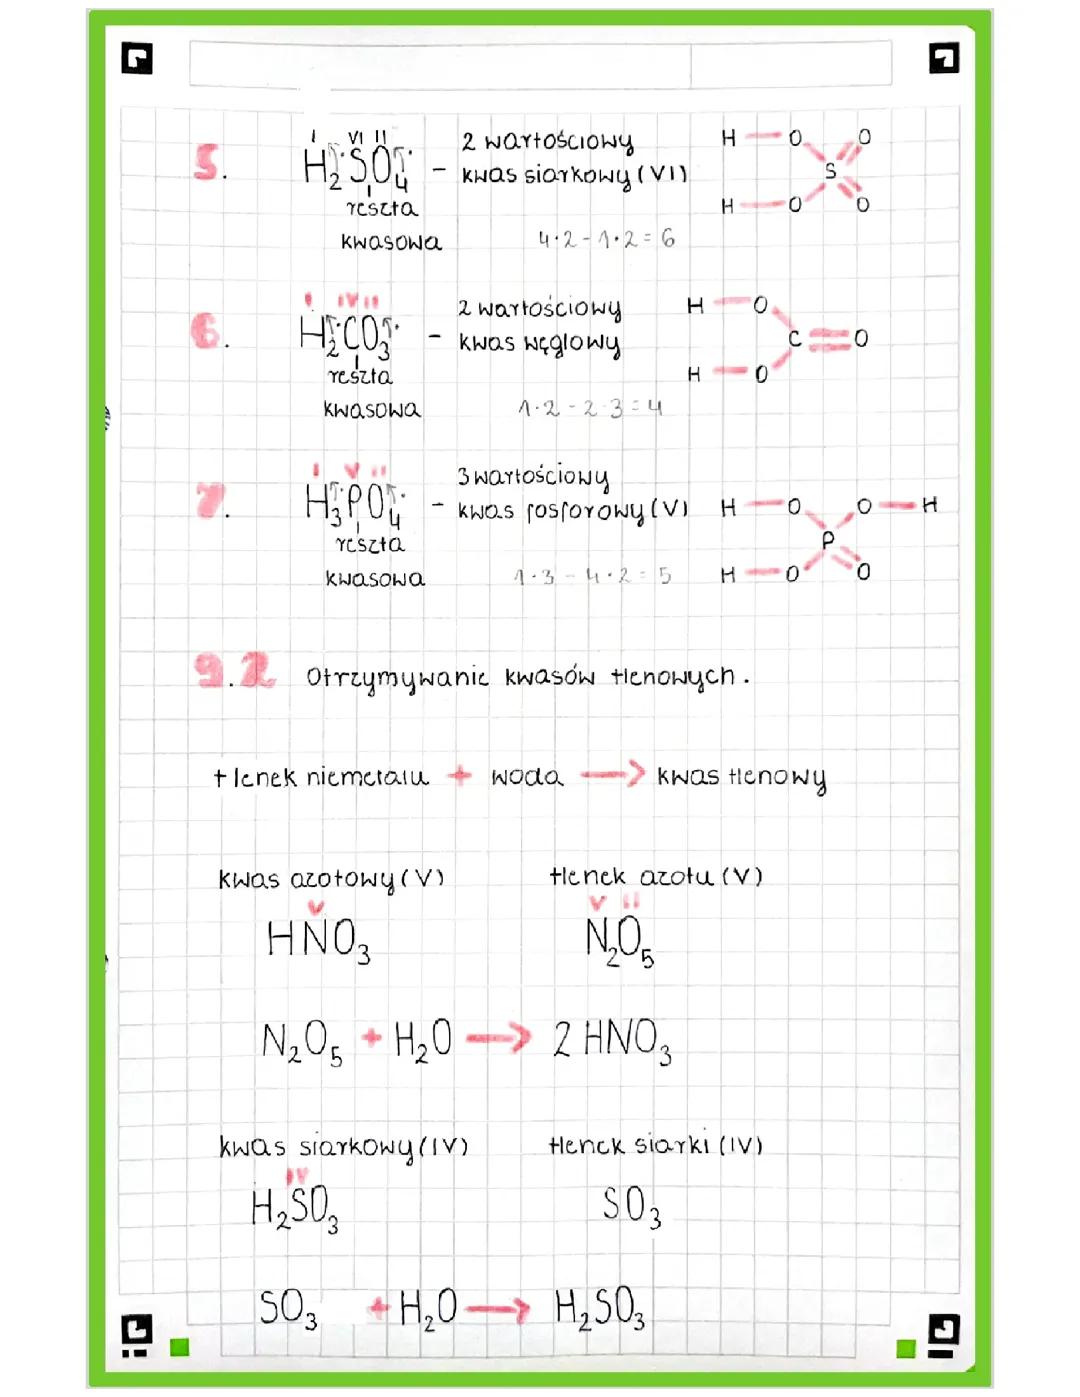 5. H₂SO₄ - 2 wartościowy
I VI II
kwas siarkowy (VI)
reszta
kwasowa
4·2-1·2=6
H O O
S
H O O
6. H₂CO₃ - 2 wartościowy
I IV II
kwas węglowy
reszta
kwasowa
1·2-2·3=4
H O
C O
H O
7. H₃PO₄ - 3 wartościowy
I V II
kwas fosforowy (V)
reszta
kwasowa
1·3-4·2=5
H O O H
P
H O O
9.2 Otrzymywanie kwasów tlenowych.
tlenek niemetalu + woda → kwas tlenowy
kwas azotowy (V) tlenek azotu (V)
V V II
HNO₃ N₂O₅
N₂O₅ + H₂O → 2 HNO₃
kwas siarkowy (IV) tlenek siarki (IV)
IV
H₂SO₃ SO₃
SO₃ + H₂O → H₂SO₃